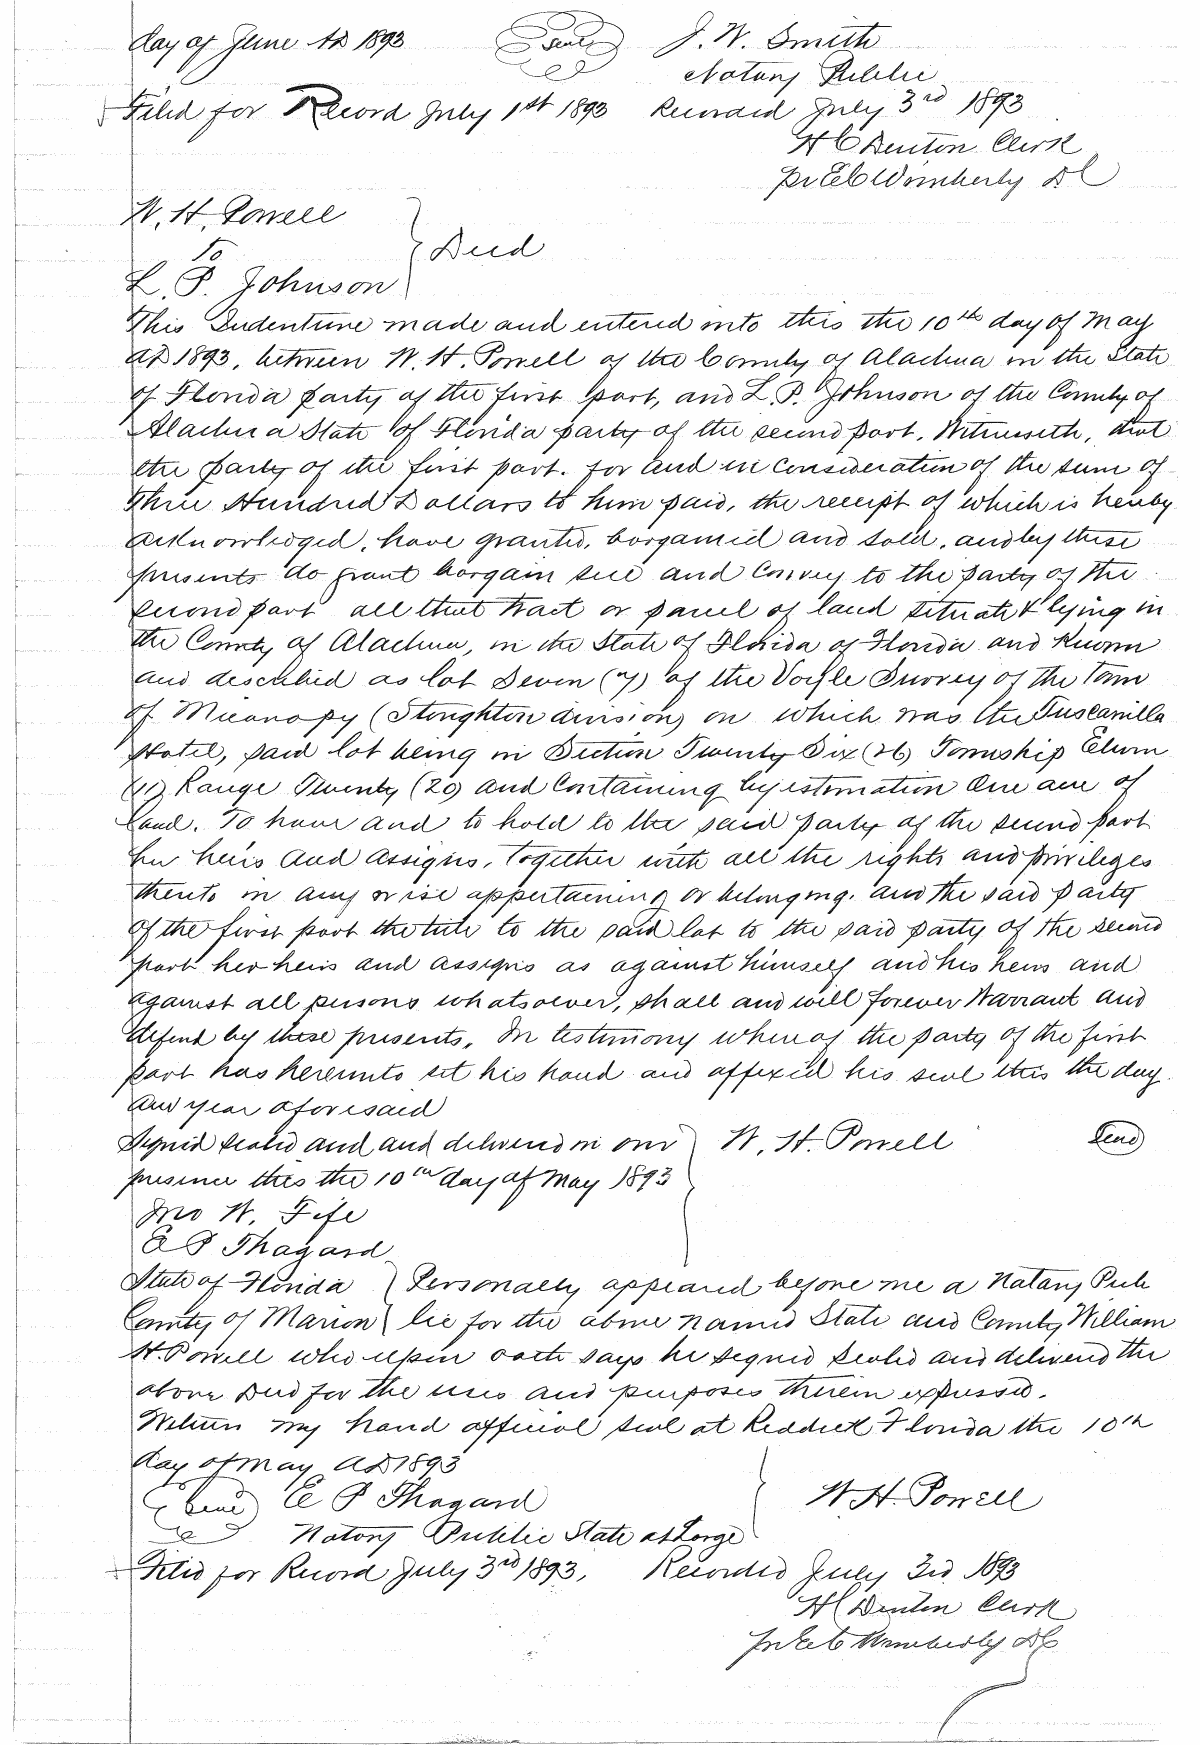 day of June AD 1893 (Seal) J. W. Smith
Notary Public
Filed for Record July 1st 1893 Recorded July 3rd 1893
H C Denton Clerk
pr E C Wimberly D C
W. H. Powell
To } Deed
L. P. Johnson
This Indenture made and entered into this the 10th day of May
AD 1893, between W. H. Powell of the County of Alachua in the State
of Florida party of the first part, and L. P. Johnson of the County of
Alachua State of Florida party of the second part, Witnesseth, that
the party of the first part. for and in consideration of the sum of
Three Hundred Dollars to him paid, the receipt of which is hereby
acknowledged, have granted, bargained and sold, and by these
presents do grant bargain sell and convey to the party of the
second part all that tract or parcel of land situate & lying in
the County of Alachua, in the State of Florida of Florida and known
and described as lot Seven (7) of the Voyle Survey of the Town
of Micanopy (Stoughton division) on which was the Tuscawilla
Hotel, said lot being in Section Twenty Six (26) Township Eleven
(11) Range Twenty (20) and containing by estimation One acre of
land. To have and to hold to the said party of the second part
her heirs and assigns, together with all the rights and privileges
thereto in any wise appertaining or belonging. and the said party
of the first part the title to the said lot to the said party of the second
part her heirs and assigns as against himself and his heirs and
against all persons whatsoever, shall and will forever Warrant and
defend by these presents, In testimony whereof the party of the first
part has hereunto set his hand and affixed his seal this the day
and year aforesaid
Signed sealed and and delivered in our } W. H. Powell (Seal)
presence this the 10th day of May 1893
Jno W. Fife
E P Thagard
State of Florida } Personally appeared before me a Notary Pub
County of Marion } lic for the above named State and County William
H. Powell who upon oath says he signed sealed and delivered the
above Deed for the uses and purposes therein expressed.
Witness my hand official seal at Reddick Florida the 10th
day of May AD 1893
(Seal) E P Thagard } W. H. Powell
Notary Public State at Large
Filed for Record July 3rd 1893, Recorded July 3rd 1893
H C Denton Clerk
pr E C Wimberly D C